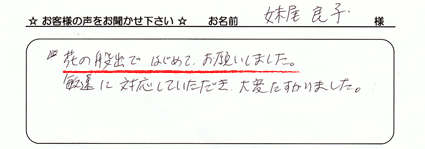 ☆ お客様の声をお聞かせ下さい ☆ お名前 妹尾 良子 様
花の搬出で はじめて、お願いしました。
敏速に 対応していただき、大変たすかりました。